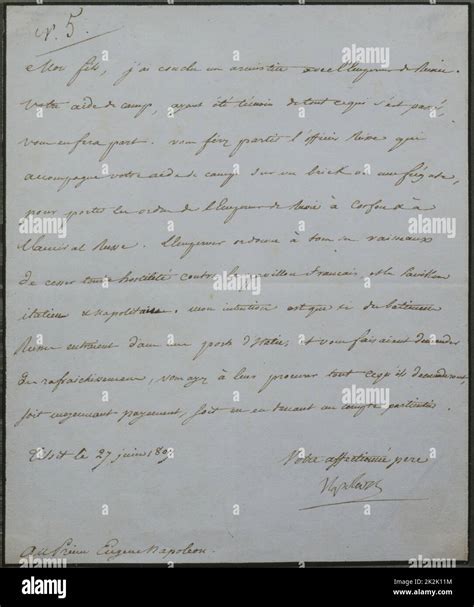 N. 5.
Mon fils, j'ai conclu un armistice avec l'Empereur de Russie.
Votre aide de camp, ayant été témoin de tout ce qui s'est passé,
vous en fera part. vous ferez partir l'officier Russe qui
accompagne votre aide de camp sur un brick ou une frégate,
pour porter les ordres de l'Empereur de Russie à Corfou & à
l'amiral Russe. L'Empereur ordonne à tous ses vaisseaux
de cesser toute hostilité contre le pavillon français, et le pavillon
italien & napolitain. mon intention est que si des bâtimens
Russes entraient dans un port d'Italie, et vous faisaient demander
des rafraichissemens, vous ayez à leur procurer tout ce qu'ils demanderont
soit moyennant payement, soit en en tenant un compte particulier.
Tilsit le 27 juin 1807
Votre affectionné pere
Napoleon
Au Prince Eugene Napoleon.
alamy
Image ID: 2K2K11M
www.alamy.com